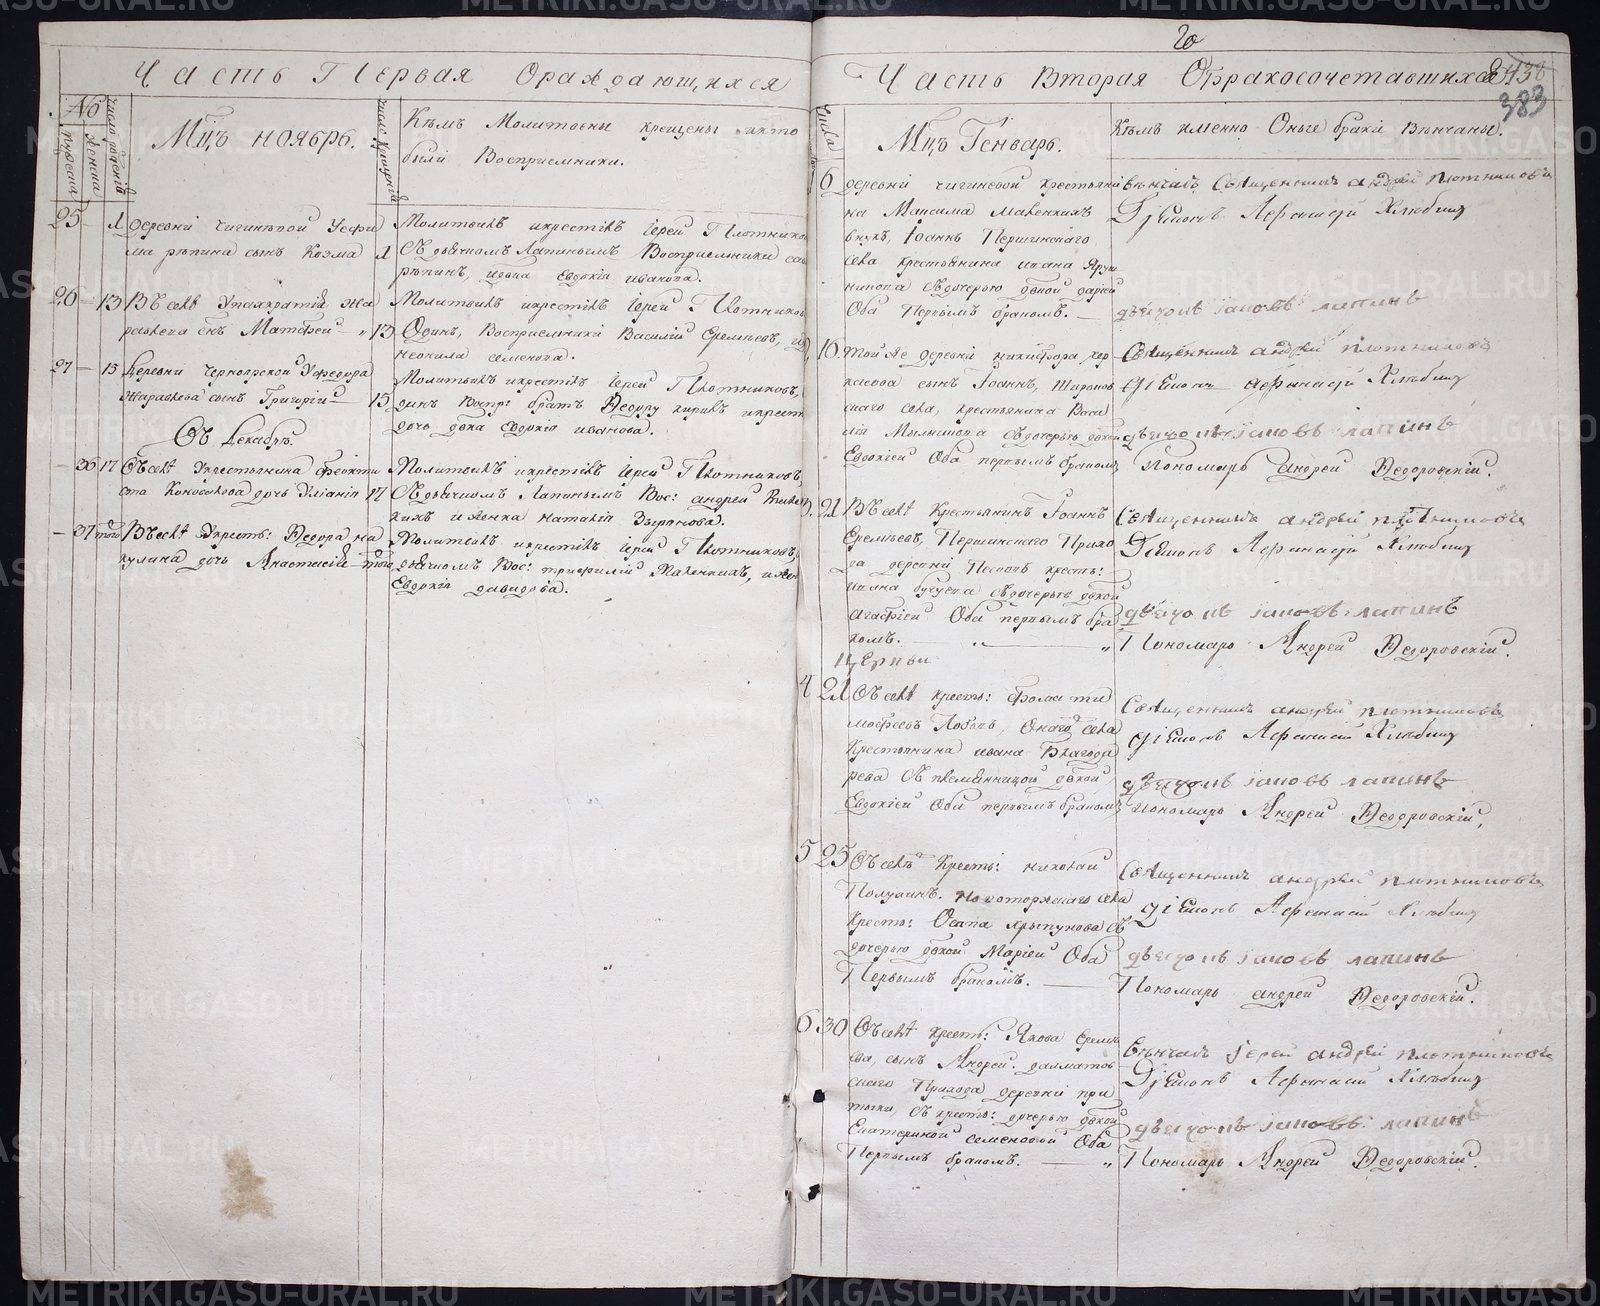 Часть Первая Ораждающихся
№
мужеска
женска
число рождения
Мцъ ноябрь.
число крещения
Кѣмъ Молитвены крещены икто
были Восприемники.
25 — 1 деревни Чигинѣвой Уефи
ма рѣпина сынъ Козма 1
Молитвилъ икрестилъ Iерей Плотников
Съ дьячкомъ Лапинымъ Восприемники
рѣпинъ, Евдокiя иванова.
26 — 13 Въ селѣ Упанкратiя Жа
равлева снъ Матфей — „ 13
Молитвилъ икрестилъ Iерей Плотников
Одинъ, Восприемники Василiй Еремѣевъ,
неонила семенова.
27 — 15 Деревни Черноярской Уфедора
Жаравлева сынъ Григорiй — 15
Молитвилъ икрестилъ Iерей Плотниковъ,
динъ Воспр: братъ Ѳедору кирилъ
дочь двка Евдокiя иванова.
Въ Декабрѣ.
— 36 17 Въ селѣ Укрестьянина феокти
ста Коновалова дочь Улiанiя 17
Молитвилъ икрестилъ Iерей Плотниковъ,
Съ дьячкомъ Лапинымъ Вос: андрей
кихъ и женка наталiя Зырянова.
— 37 того Въ селѣ Укресть: Ѳедора на
кулина дочь Анастасiя — того
Молитвилъ икрестилъ Iерей Плотниковъ,
дьячкомъ Вос: трифилiй Маленкихъ,
Евдокiя давидова.
20
Часть Вторая Обракосочетавшихся 438
383
числа
Мцъ Генварь.
Кѣмъ именно Оные браки Вѣнчаны.
6 деревни чигиневой крестьяни
на Максима маленкихъ
внукъ, Iоаннъ Першинскаго
села крестьянина ивана Яру
нинова Съдочерью двкой дарiей
Оба Первымъ бракомъ. —
вѣнчалъ Священникъ андрей плотниковъ
Дiяконъ Афанасiй Хлыбинъ
дьячокъ iаковъ лапинъ
16 той же деревни никифора чер
касова сынъ Iоаннъ, Широков
скаго села, крестьянина Васи
лiя Мылникова Съдочерью двкой
Евдокiей Оба первымъ бракомъ
Священникъ андрей плотниковъ
дiяконъ афанасiй Хлыбинъ
дьячокъ iаковъ лапинъ
Пономарь андрей Ѳедоровскiй.
3. 21 Въ селѣ Крестьянинъ Iоаннъ
Еремѣевъ, Першинскаго Прихо
да деревни Песковъ крестъ:
ивана бугуева Съдочерью двкой
агафiей Оба первымъ бра
комъ. — „ — „
Священникъ андрей плотниковъ
Дiяконъ Афанасiй Хлыбинъ
дьячокъ iаковъ лапинъ
Пономарь Андрей Ѳедоровскiй.
4 21 Въ селѣ крестъ: фома ти
мофѣевъ Лобовъ, Онаго села
Крестьянина ивана Благода
рева Съ племянницой двкой
Евдокiей Оба первымъ бракомъ
Священникъ андрей плотниковъ
дiяконъ Афанасiй Хлыбинъ
дьячокъ iаковъ лапинъ
Пономарь Андрей Ѳедоровскiй,
5 25 Въ селѣ Крестъ: николай
Полухинъ. Новоторжскаго села
Крестъ: Осипа Хрыпунова Съ
дочерью двкой Марiей Оба
Первымъ бракомъ. —
Священникъ андрей плотниковъ
дiяконъ Афанасiй Хлыбинъ
дьячокъ iаковъ лапинъ
Пономарь андрей Ѳедоровскiй.
6 30 Въ селѣ крестъ: Якова Еремѣ
ева, сынъ Андрей. далматов
скаго Прихода деревни при
тыки Съ крестъ: дочерью двкой
Екатериной семеновой Оба
Первымъ бракомъ. — „
Вѣнчалъ Iерей андрей плотниковъ
Дiяконъ Афанасiй Хлыбинъ
дьячокъ iаковъ лапинъ
Пономарь Андрей Ѳедоровскiй.
METRIKI.GASO-URAL.RU